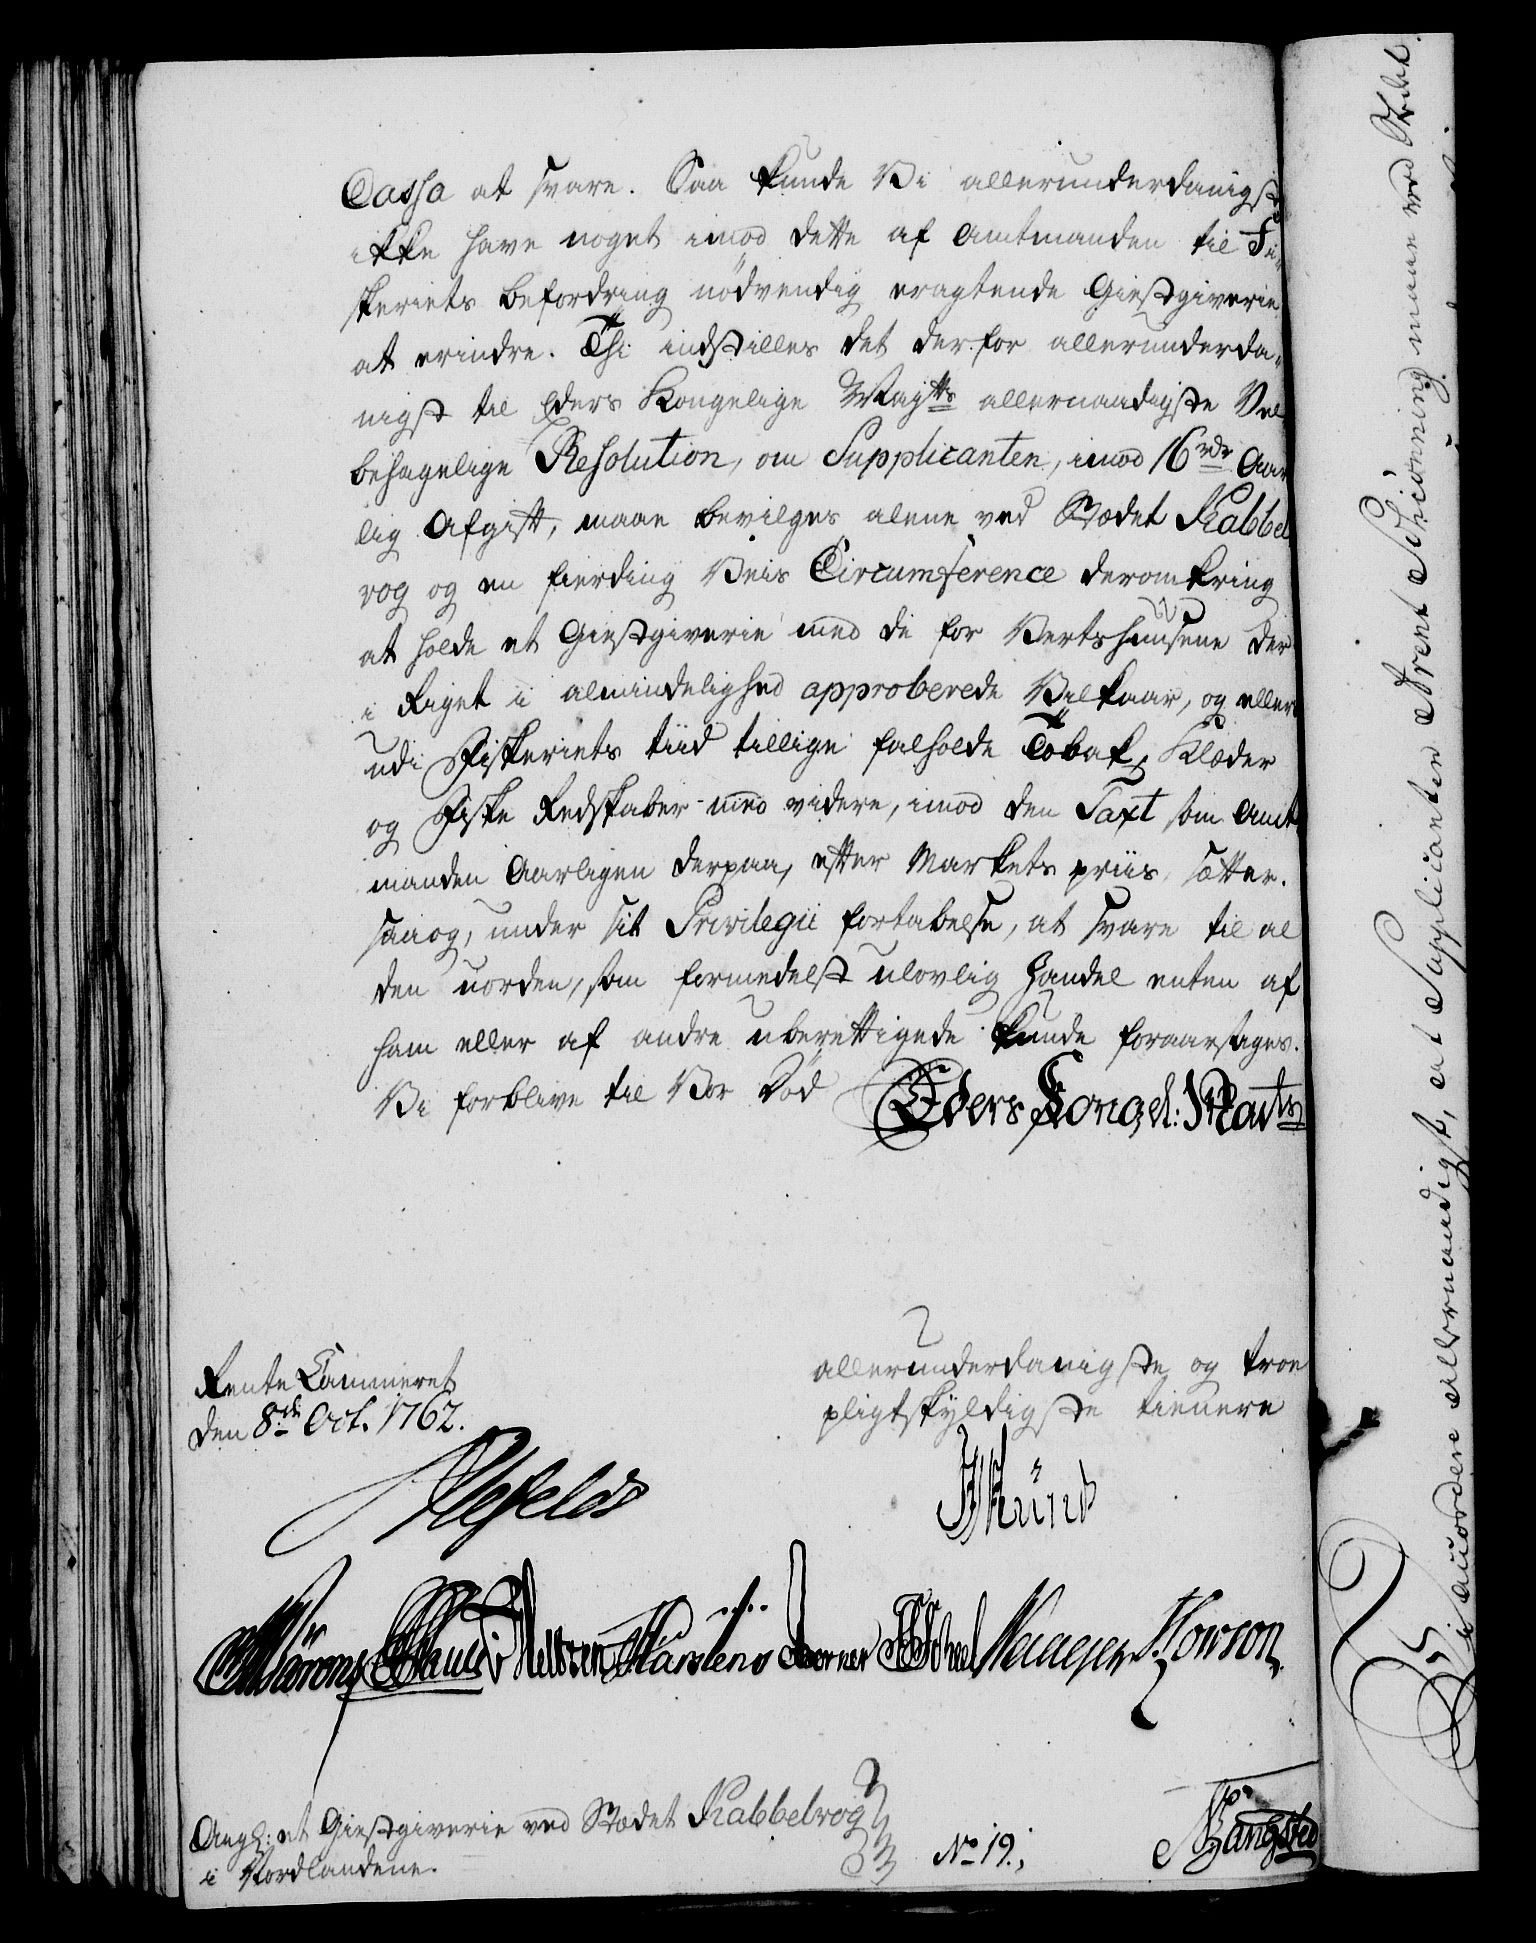 Cassa at svare. Saa kunde Vi allerunderdanigst
ikke have noget imod dette af Amtmanden til Fi-
skeriets befordring nödvendig eragtende Giestgiverie
at erindre. Thi indstilles det derfor allerunderda-
nigst til Eders Kongelige Maytts allernaadigste Vel
behagelige Resolution, om Supplicanten, imod 16 rdr Aar
lig Afgift, maae bevilges alene ved Stædet Kabbel
vog og en fierding Veis Circumference deromkring
at holde et Giestgiverie med de for Vertshuusene der
i Riget i almindelighed approberede Vilkaar, og ellers
udi Fiskeriets tiid tillige falholde Tobak, Klæder
og Fiske Redskaber med videre, imod den Taxt som Amt
manden Aarligen derpaa, efter Markets priis, sætter.
saaog, under sit Privilegii fortabelse, at svare til al
den uorden, som formedelst ulovlig Handel enten af
ham eller af andre uberettigede kunde foraarsages.
Vi forblive til Vor Död
Eders Kongel: Mayts
allerunderdanigste og troe
pligtskyldigste tienere
Rente Cammeret
den 8de Oct. 1762.
Ahlefeldt
Knuus Hielmstierne
Karstens Horrebow Scheel Nedergaard Howson
Ang: et Giestgiverie ved Stædet Kabbelvog
i Nordlandene.
No 19.
Bangsted
Vi tillordne allernaadigst, at Supplicanten Arent Schiönning maae ved Stædet